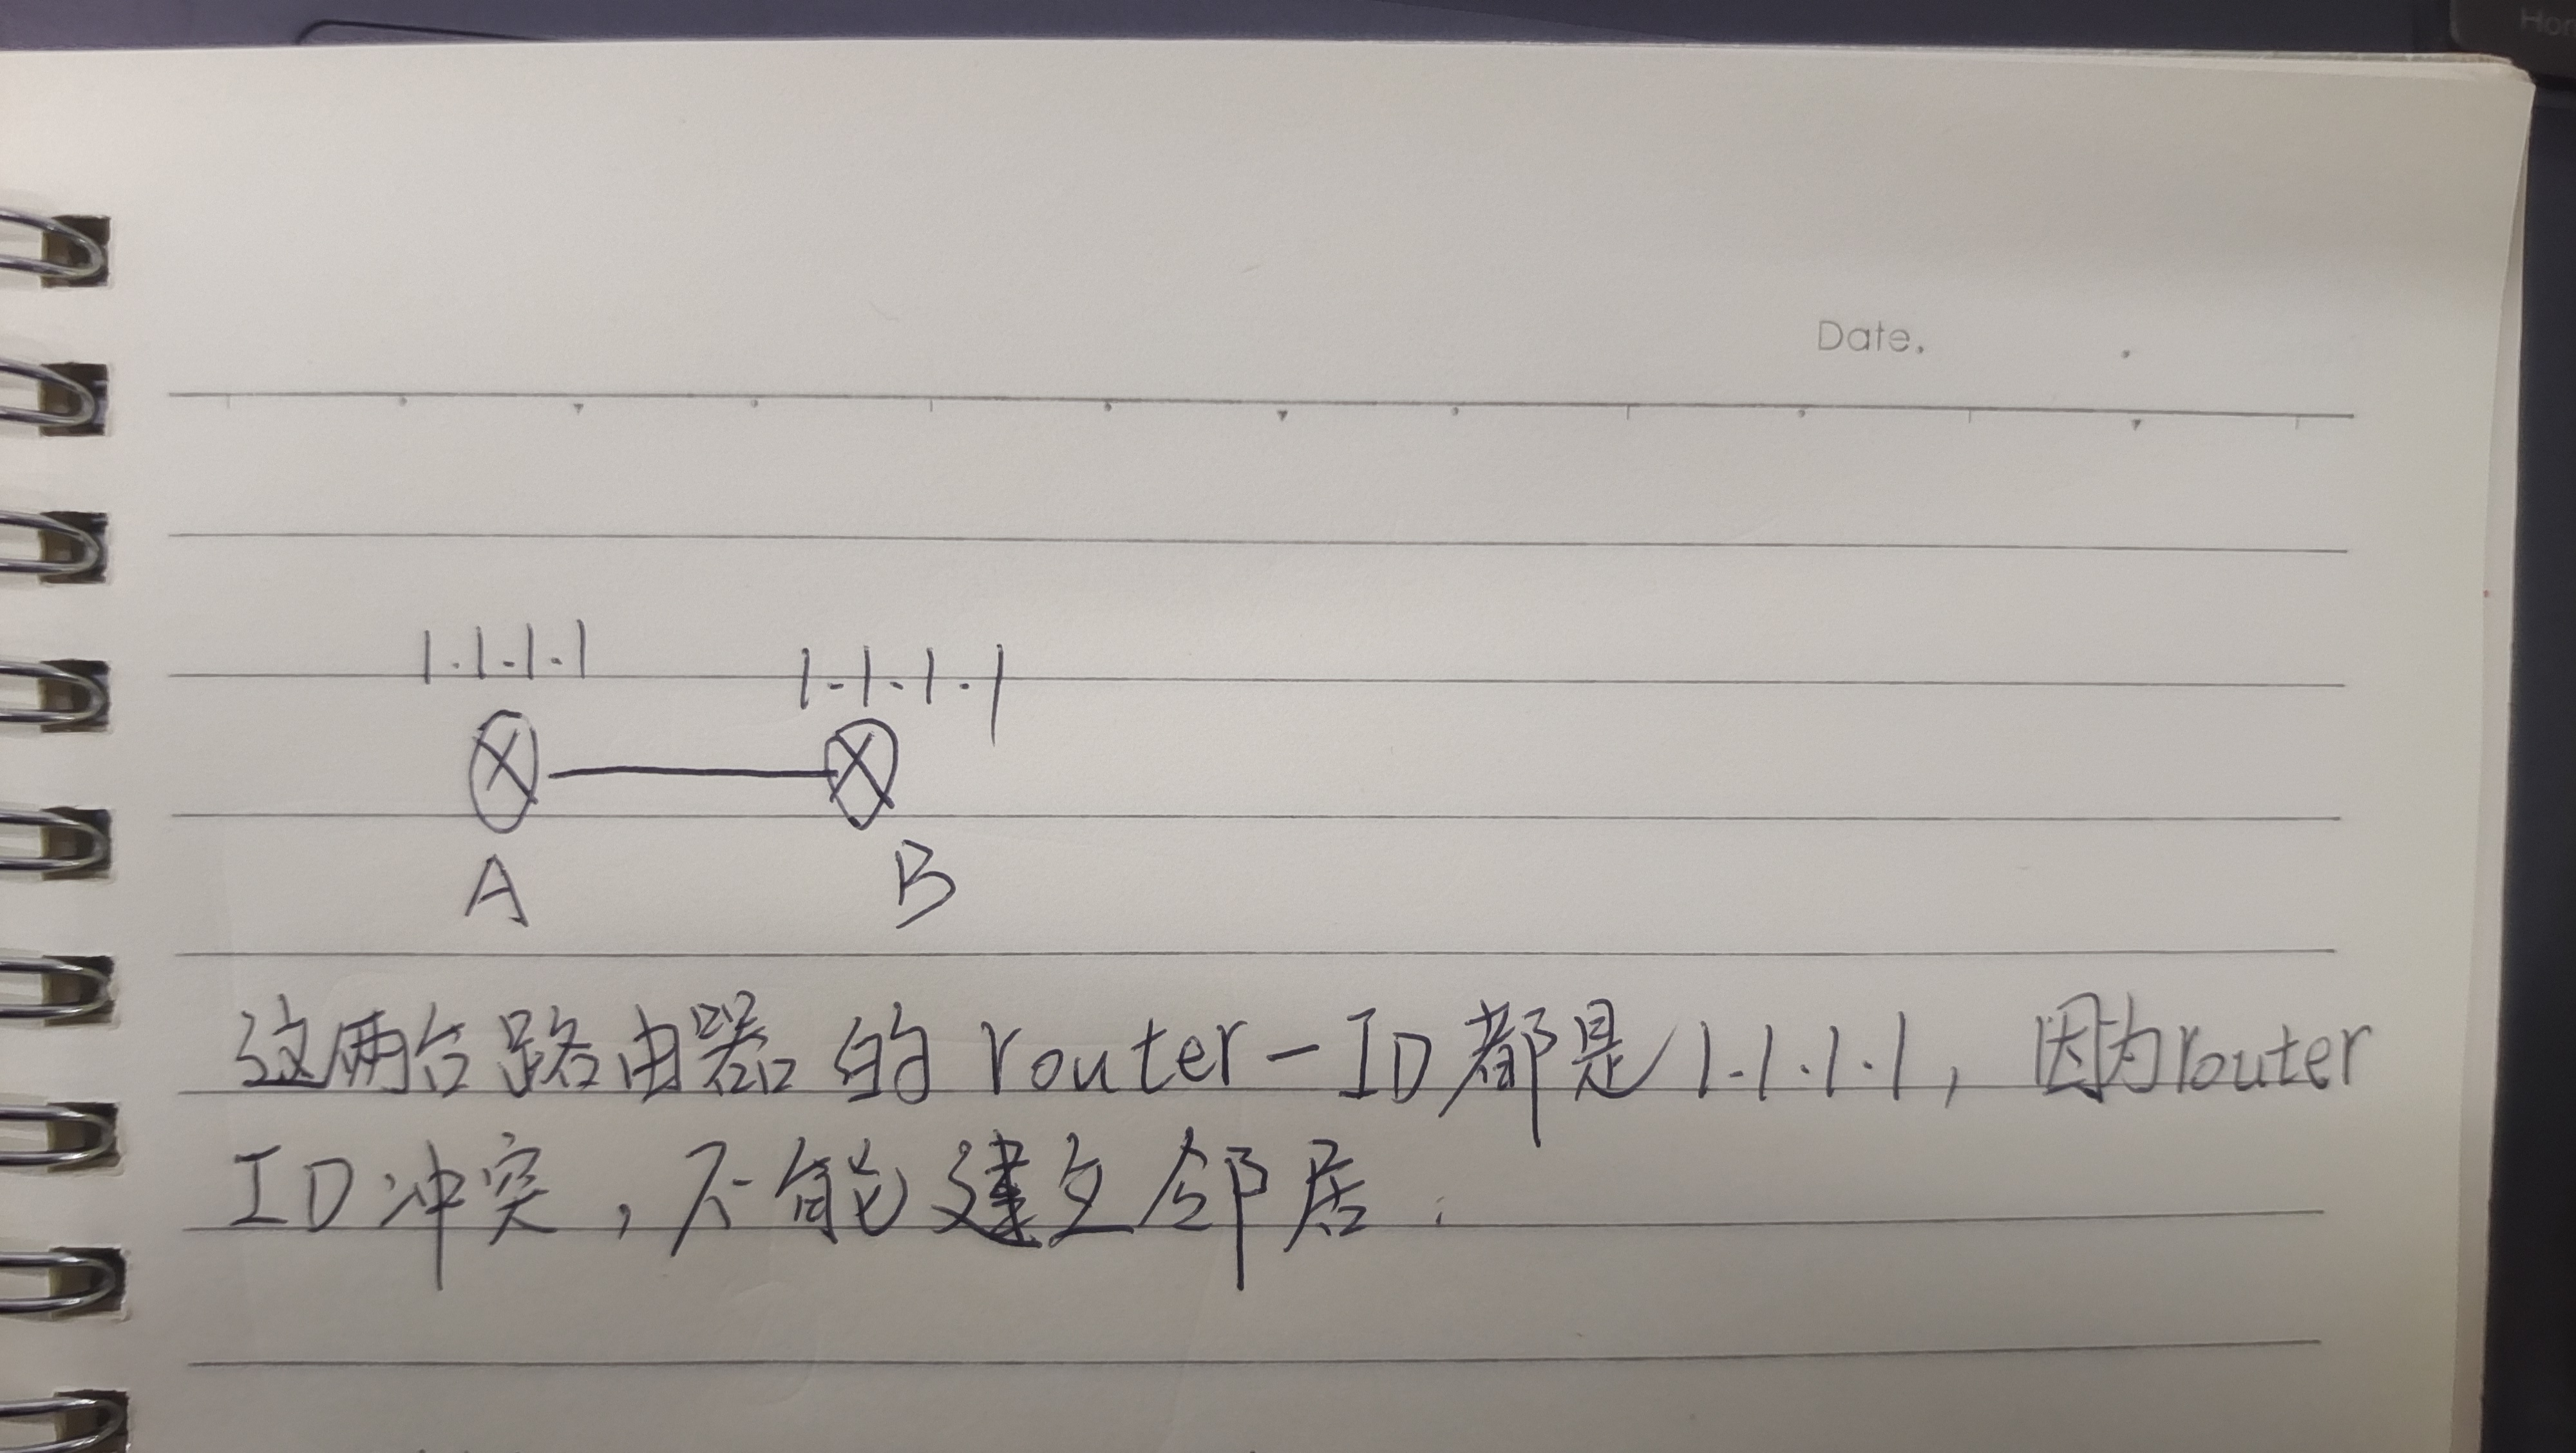 Hom
Date.
1.1.1.1 1.1.1.1
A B
这两台路由器的router-ID都是1.1.1.1，因为router
ID冲突，不能建立邻居.